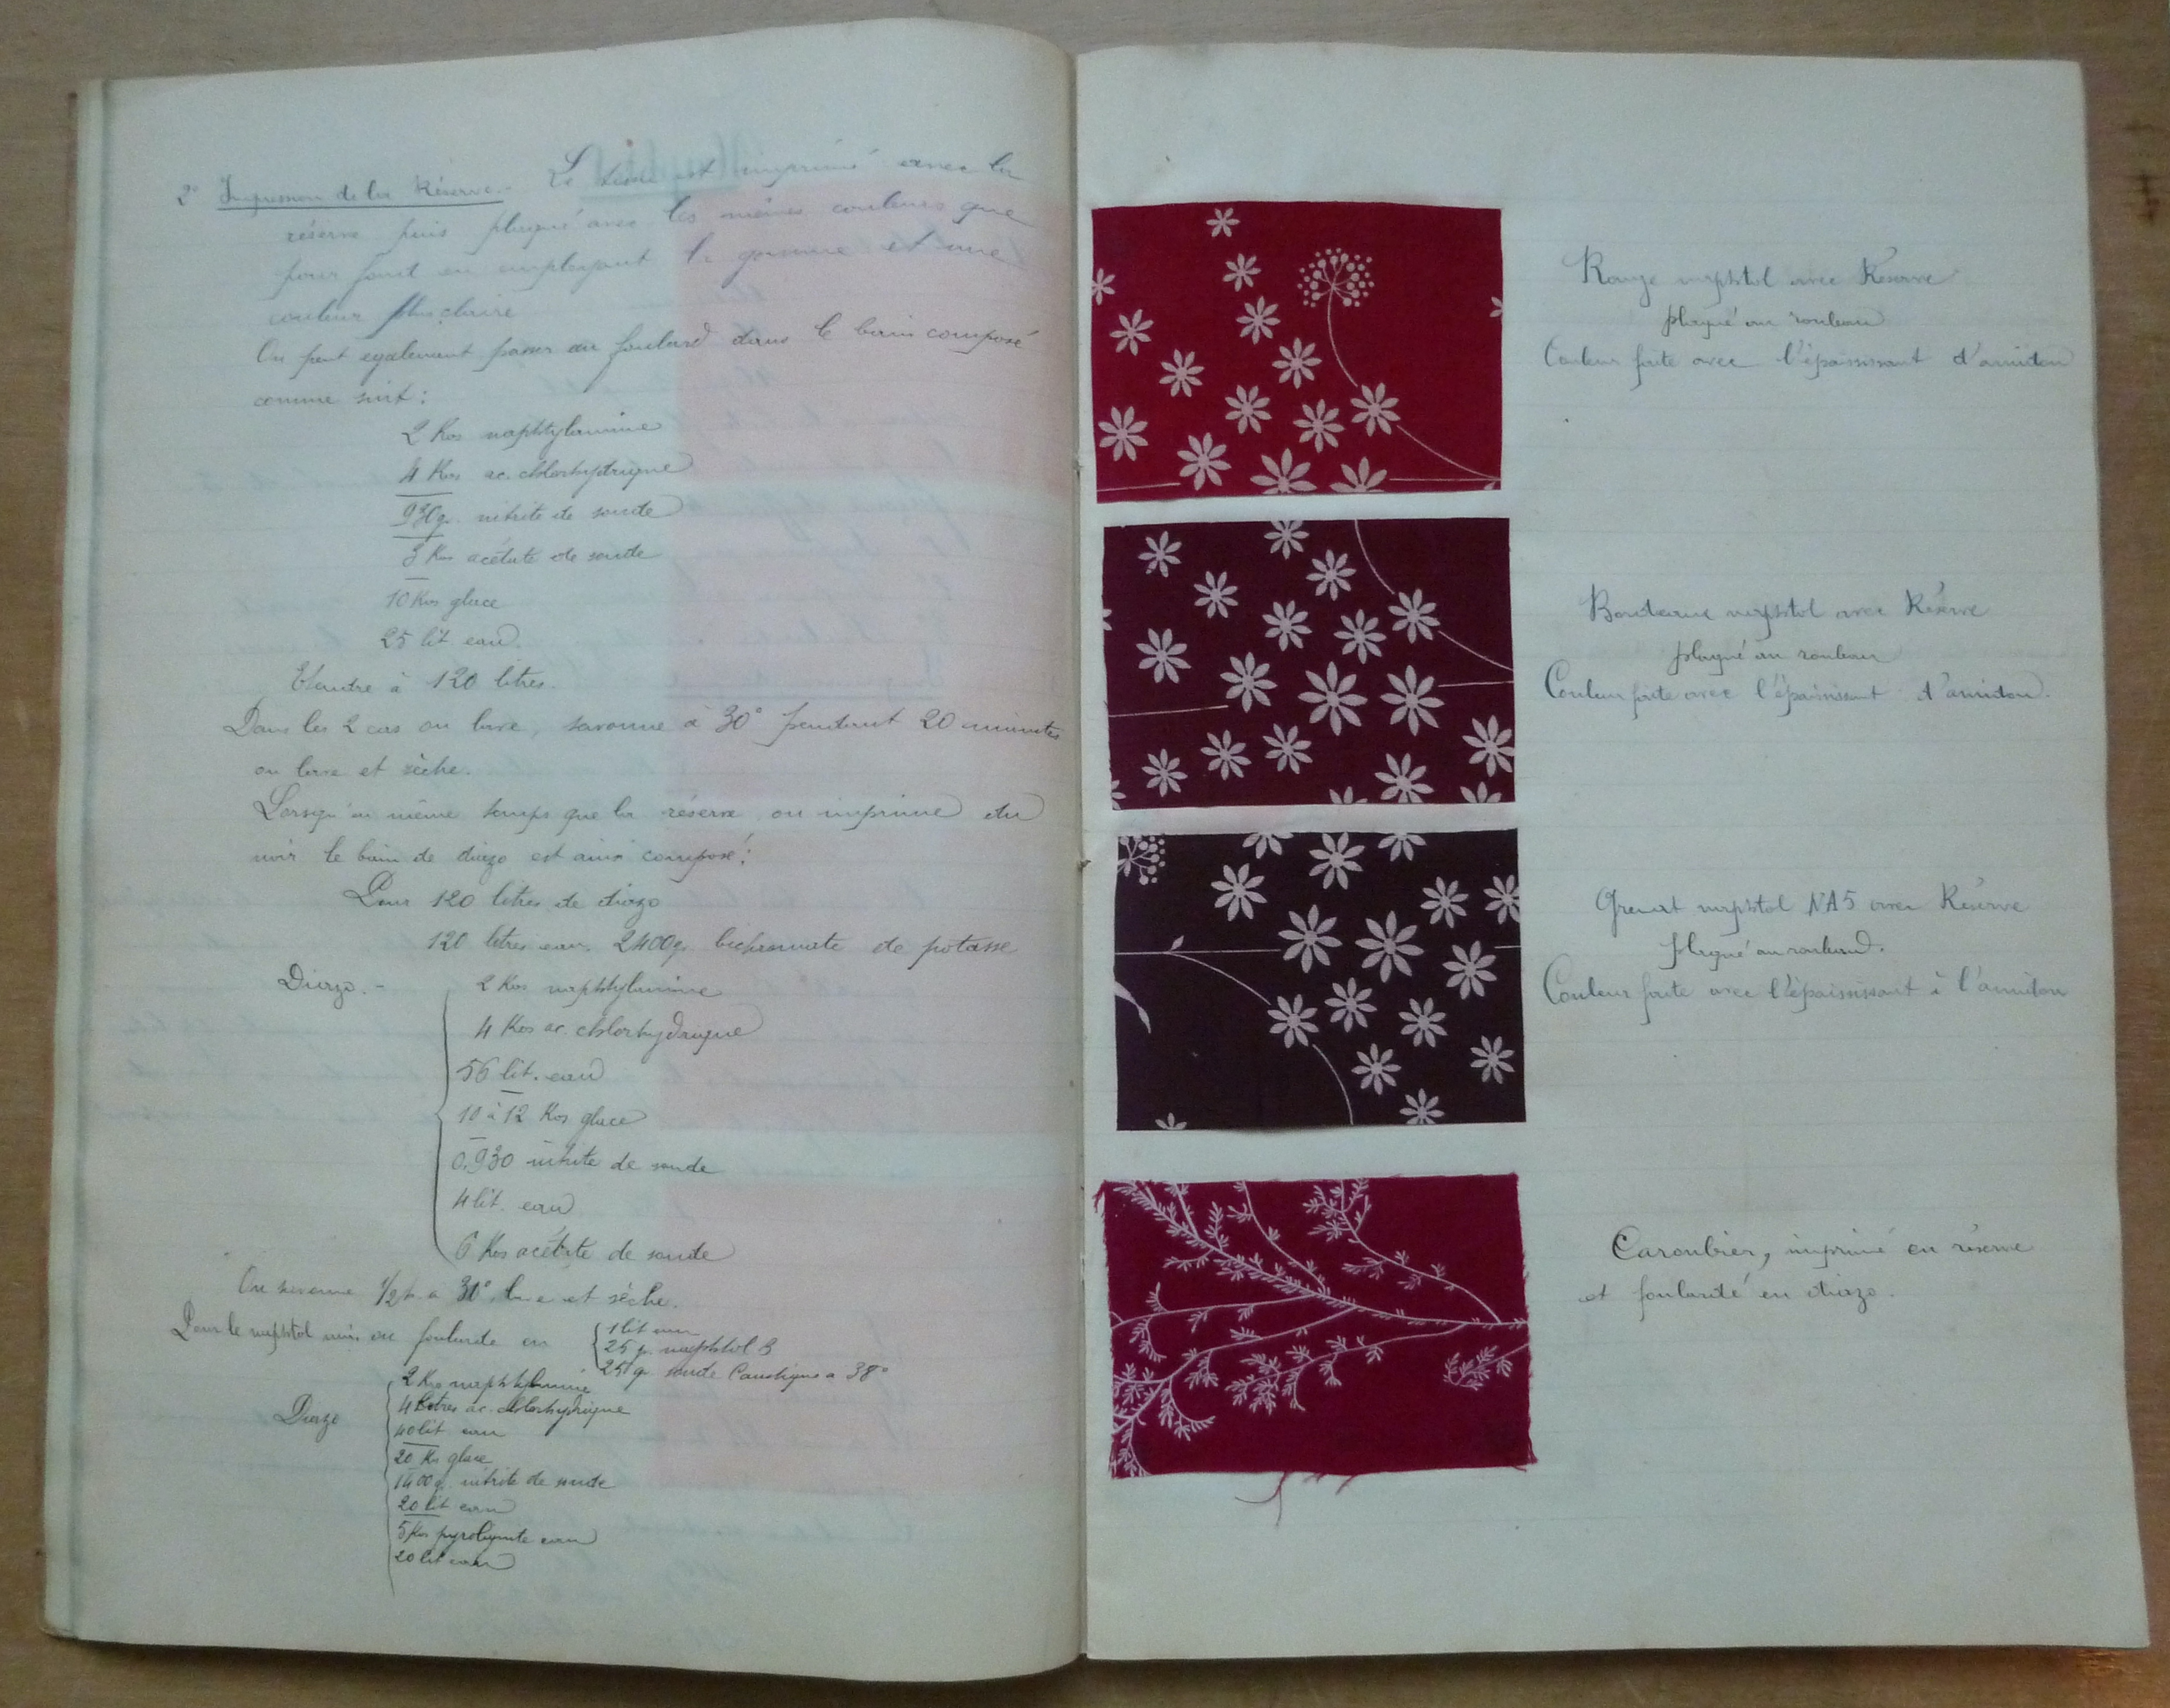 2° Impression de la Réserve.- Le tissu est imprimé avec la
réserve puis plaqué avec les mêmes couleurs que
pour fond en employant la gomme et une
couleur plus claire
On peut egalement passer au foulard dans le bain composé
comme suit :
2 Kos naphtylamine
4 Kos ac. chlorhydrique
930g. nitrite de soude
3 Kos acétate de soude
10 Kos glace
25 lit eau.
Etendre à 120 litres.
Dans les 2 cas on lave, savonne à 30° pendant 20 minutes
on lave et sèche.
Lorsqu'en même temps que la réserve on imprime du
noir le bain de diazo est ainsi composé :
Pour 120 litres de diazo
120 litres eau. 2400g. bichromate de potasse
Diazo.- 2 Kos naphtylamine
4 Kos ac. chlorhydrique
56 lit. eau
10 à 12 Kos glace
0,930 nitrite de soude
4 lit. eau
6 Kos acétate de soude
On savonne 1/2h a 30°, lave et sèche.
Pour le naphtol on foularde en 1 lit eau
25 g. naphtol B
25 g. soude Caustique a 38°
Diazo 2 Kos naphtylamine
4 litres ac. chlorhydrique
40 lit eau
20 Ks glace
1400g. nitrite de soude
20 lit eau
5 Kos eau
20 lit eau
Rouge naphtol avec Réserve
plaqué au rouleau
Couleur forte avec l'épaississant d'amidon
Bordeaux naphtol avec Réserve
plaqué au rouleau
Couleur forte avec l'épaississant d'amidon.
Grenat naphtol NA5 avec Réserve
plaqué au rouleau.
Couleur forte avec l'épaississant à l'amidon
Caroubier, imprimé en réserve
et foulardé en diazo.